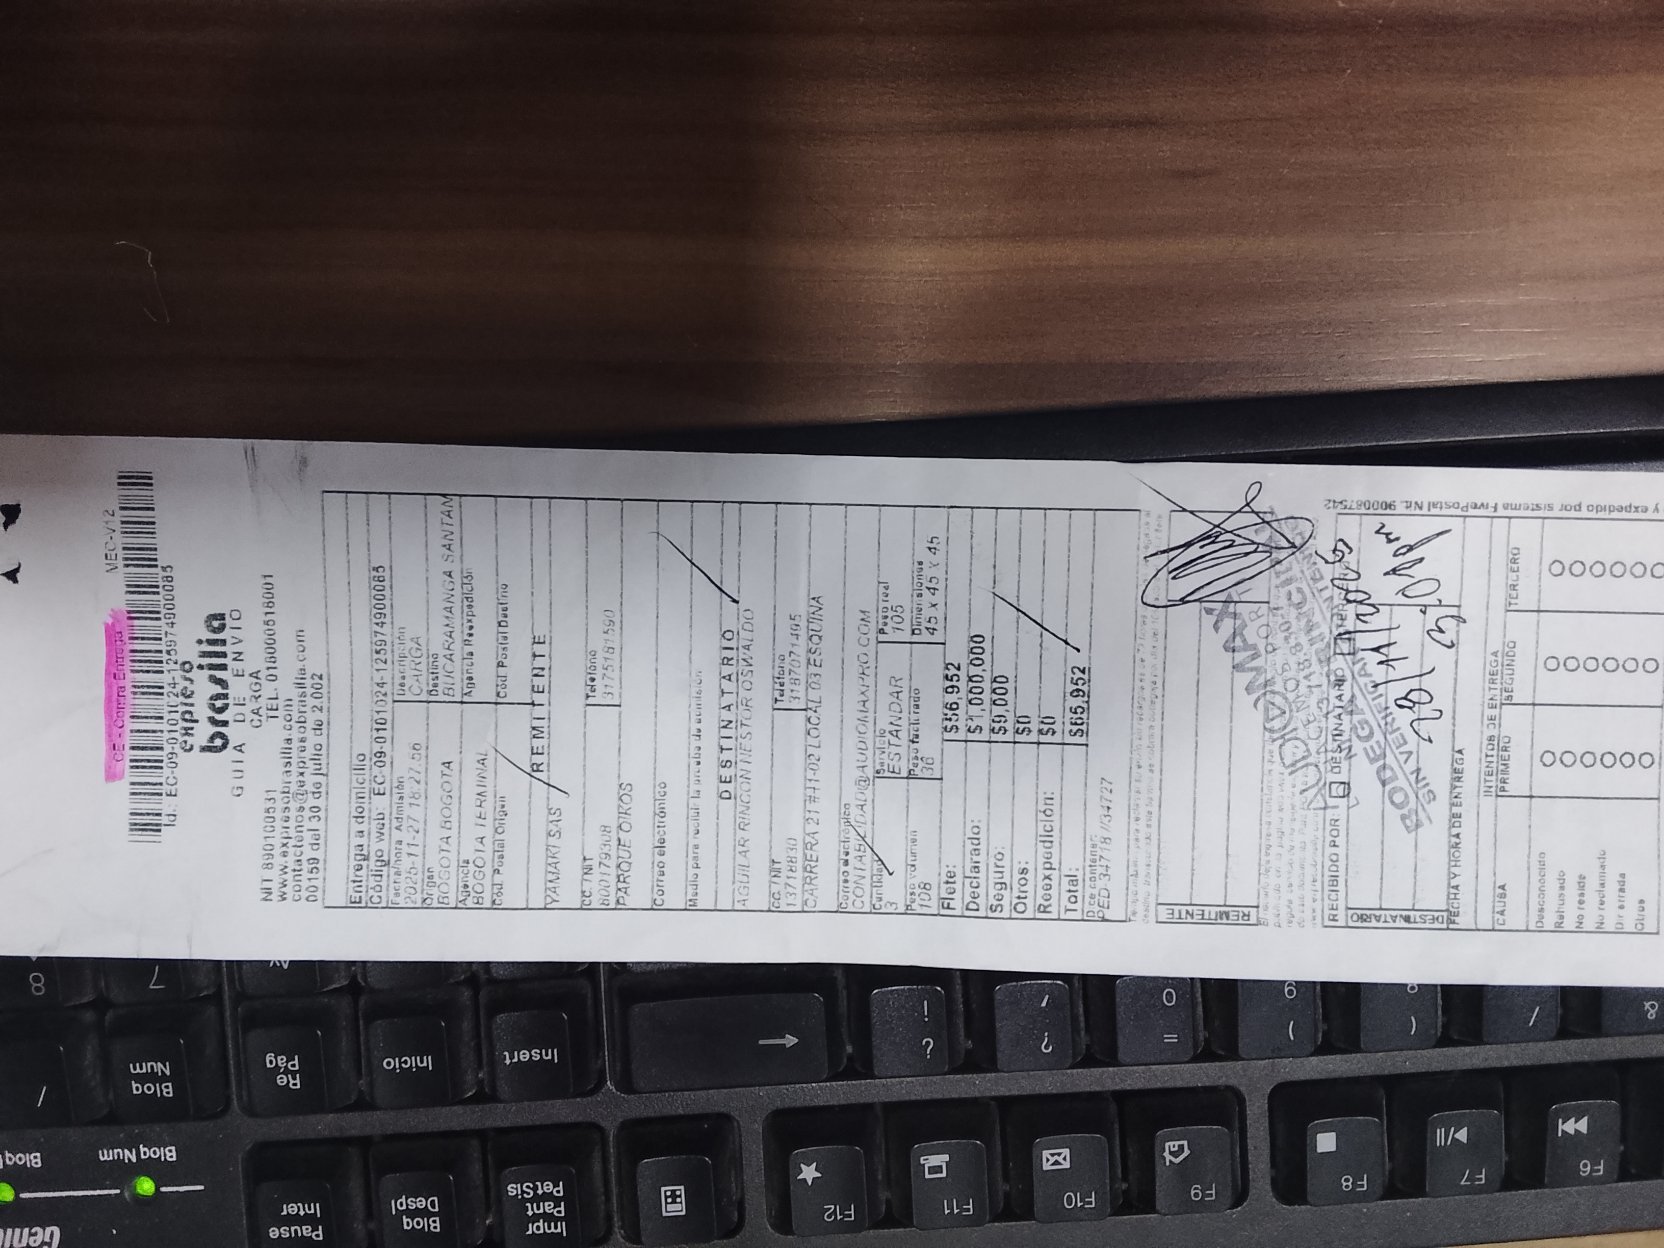 CE - Contra Entrega
MEC-V12
Id.: EC-09-0101024-125974900085
expreso
brasilia
GUIA DE ENVIO
CARGA
NIT 890100531 TEL. 018000518001
www.expresobrasilia.com
contactenos@expresobrasilia.com
00159 del 30 de julio de 2.002
Entrega a domicilio
Código web: EC-09-0101024-125974900085
Fecha/hora Admisión Descripción
2025-11-27 18:27:56 CARGA
Origen Destino
BOGOTA BOGOTA BUCARAMANGA SANTAN
Agencia Agencia Reexpedición
BOGOTA TERMINAL
Cód. Postal Origen Cód. Postal Destino
REMITENTE
YAMAKI SAS
CC. / NIT Teléfono
800179308 3175181590
PARQUE OIKOS
Correo electrónico
Medio para recibir la prueba de admisión
DESTINATARIO
AGUILAR RINCON NESTOR OSWALDO
CC. / NIT Teléfono
13718830 3187071405
CARRERA 21 #41-02 LOCAL 03 ESQUINA
Correo electrónico
CONTABILIDAD@AUDIOMAXPRO.COM
Cantidad Servicio Peso real
3 ESTANDAR 105
Peso volumen Peso facturado Dimensiones
108 36 45 x 45 x 45
Flete: $56,952
Declarado: $1,000,000
Seguro: $9,000
Otros: $0
Reexpedición: $0
Total: $65,952
Dice contener:
PED-34718 //34727
REMITENTE
AUDIOMAX
BODEGA PRINCIPAL
SIN VERIFICAR
RECIBIDO POR: DESTINATARIO TERCERO
DESTINATARIO
28/11/2025
3:01pm
FECHA Y HORA DE ENTREGA
INTENTOS DE ENTREGA
CAUSA PRIMERO SEGUNDO TERCERO
Desconocido
Rehusado
No reside
No reclamado
Dir errada
Otros
y expedido por sistema FivePostal Nit. 900087542
8
7
Av
/
Bloq
Num
Re
Pág
Inicio
Insert
!
?
0
=
9
)
8
(
/
&
Bloq Num
Bloq
Genius
Pause
Inter
Bloq
Despl
Impr
Pant
PetSis
F12
F11
F10
F9
F8
F7
F6